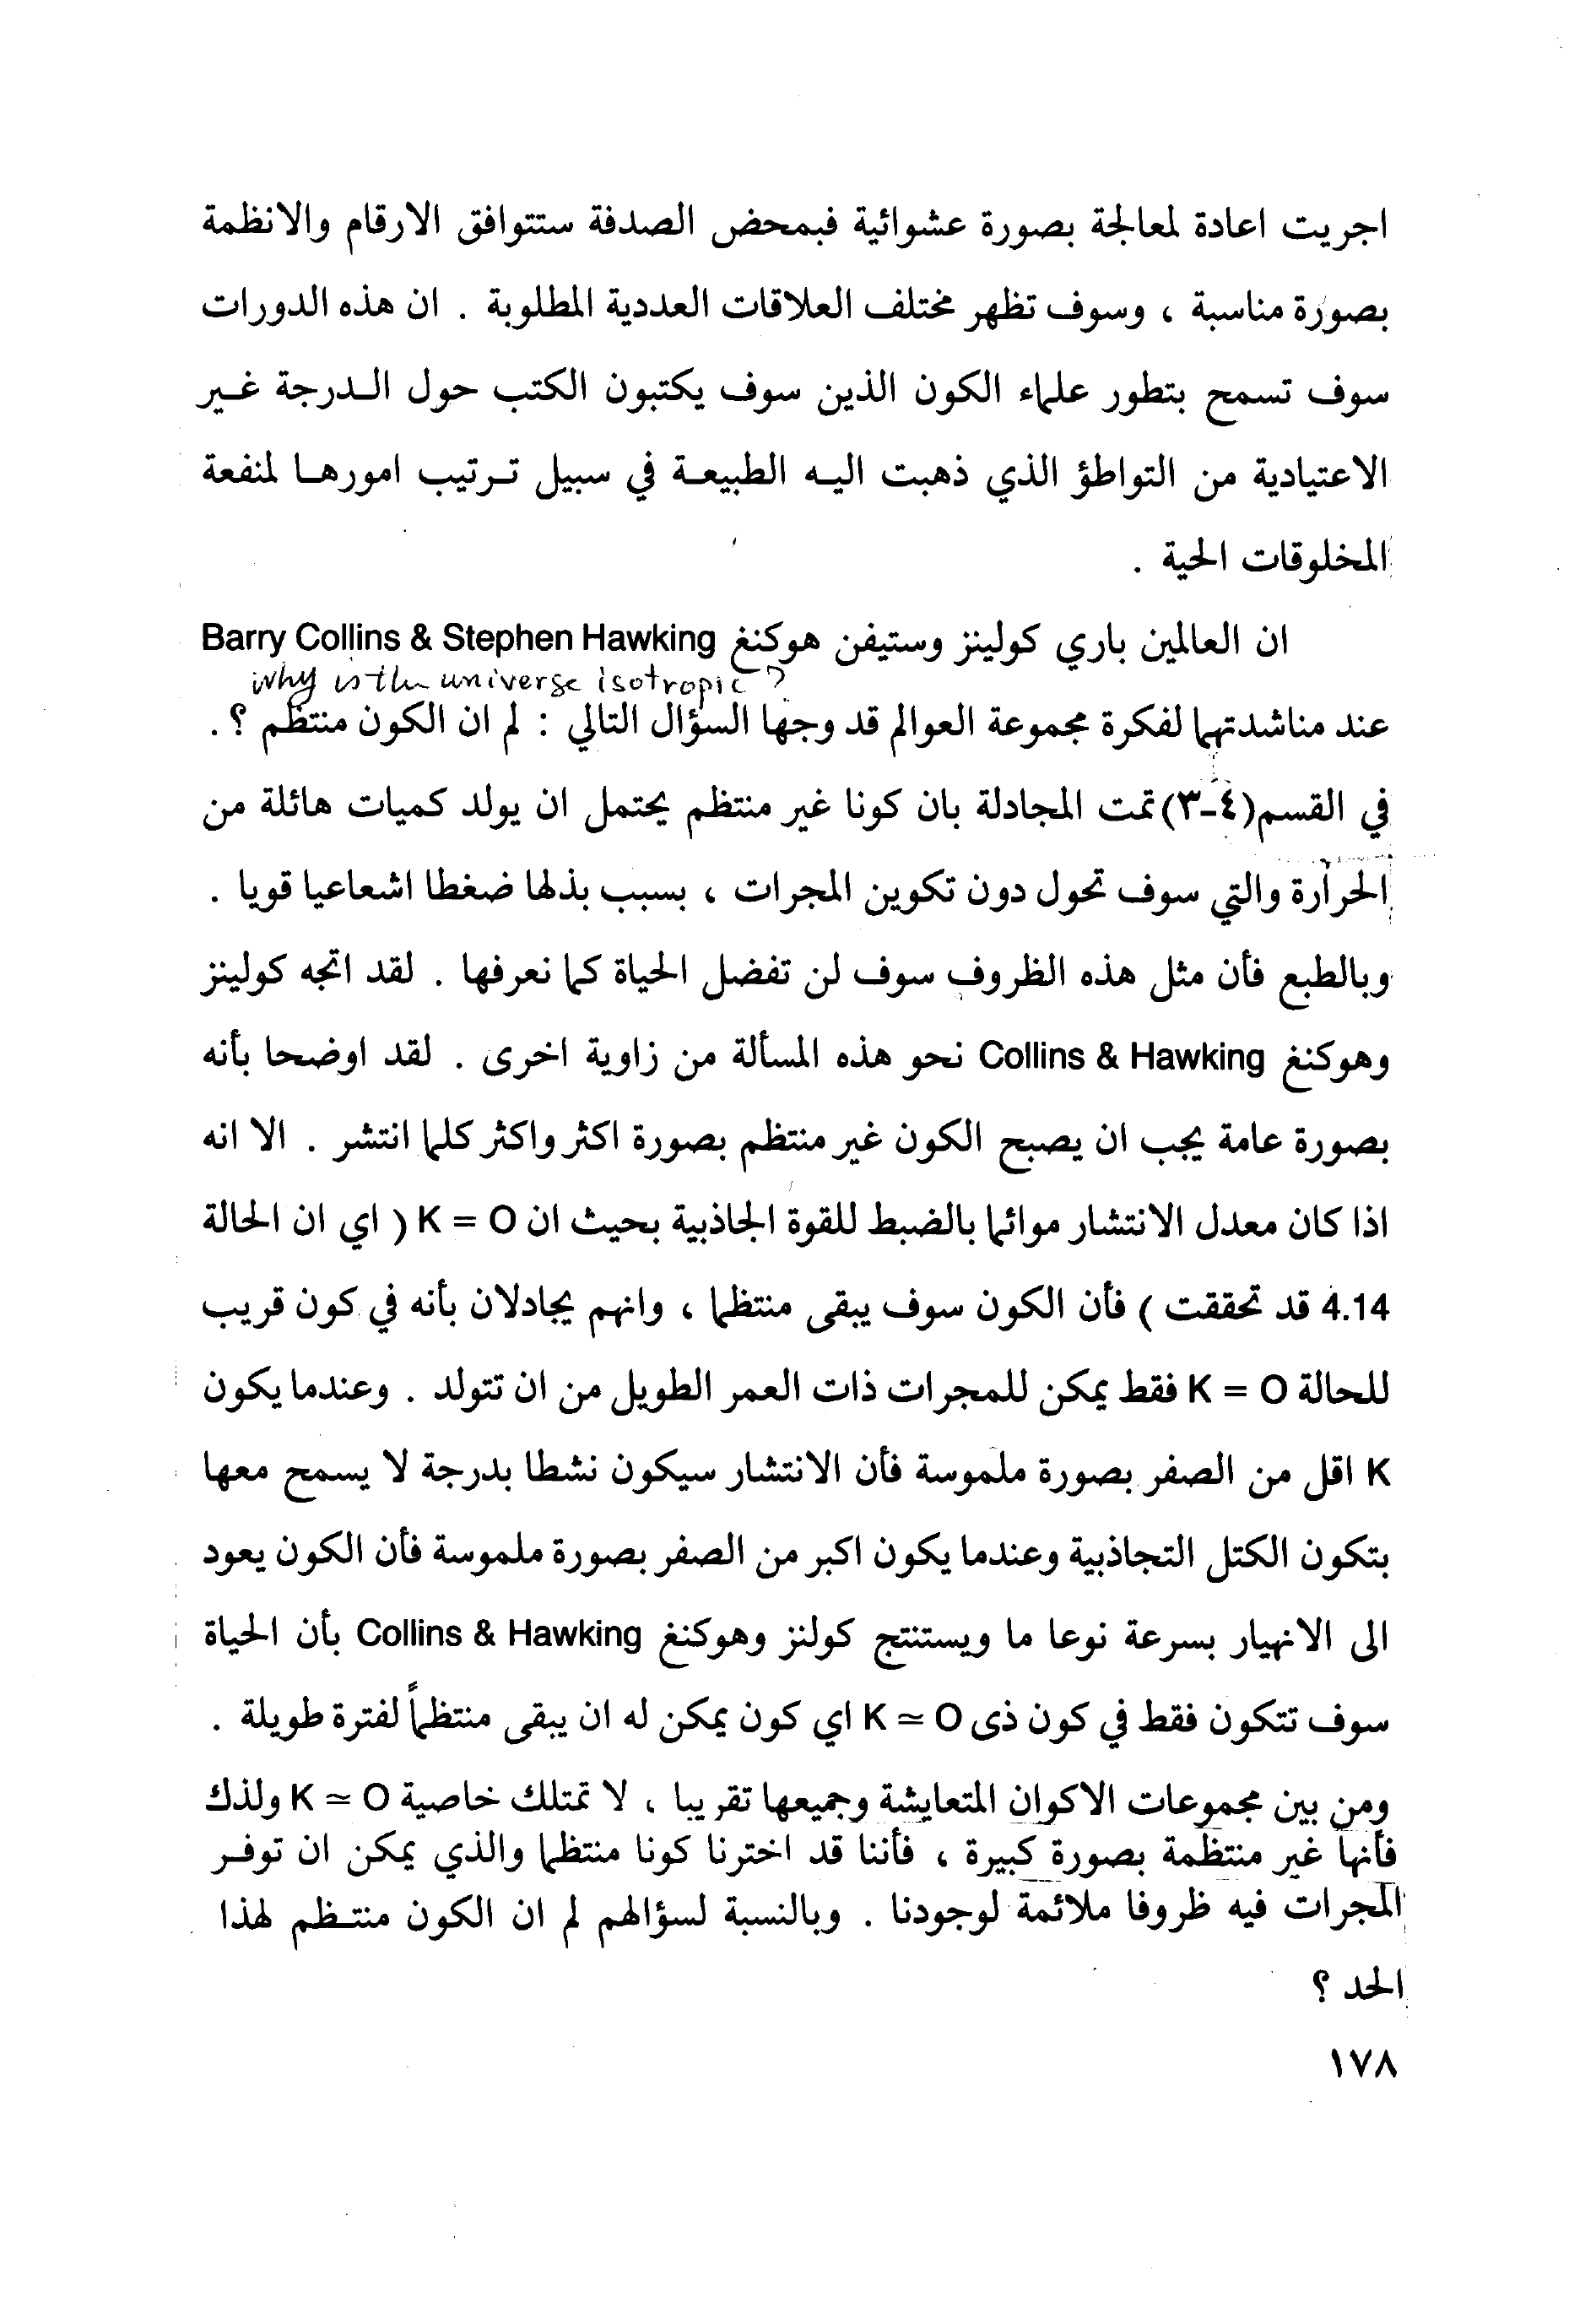 اجريت اعادة لمعالجة بصورة عشوائية فبمحض الصدفة ستتوافق الارقام والانظمة
بصورة مناسبة ، وسوف تظهر مختلف العلاقات العددية المطلوبة . ان هذه الدورات
سوف تسمح بتطور علماء الكون الذين سوف يكتبون الكتب حول الـدرجة غـير
الاعتيادية من التواطؤ الذي ذهبت اليـه الطبيعـة في سبيل تـرتيب امورهـا لمنفعة
المخلوقات الحية .
ان العالمين باري كولينز وستيفن هوكنغ Barry Collins & Stephen Hawking
why is the universe isotropic ?
عند مناشدتهما لفكرة مجموعة العوالم قد وجها السؤال التالي : لم ان الكون منتظم ؟ .
في القسم (٤-٣) تمت المجادلة بان كونا غير منتظم يحتمل ان يولد كميات هائلة من
الحرارة والتي سوف تحول دون تكوين المجرات ، بسبب بذلها ضغطا اشعاعيا قويا .
وبالطبع فأن مثل هذه الظروف سوف لن تفضل الحياة كما نعرفها . لقد اتجه كولينز
وهوكنغ Collins & Hawking نحو هذه المسألة من زاوية اخرى . لقد اوضحا بأنه
بصورة عامة يجب ان يصبح الكون غير منتظم بصورة اكثر واكثر كلما انتشر . الا انه
اذا كان معدل الانتشار موائما بالضبط للقوة الجاذبية بحيث ان K = O ( اي ان الحالة
4.14 قد تحققت ) فأن الكون سوف يبقى منتظما ، وانهم يجادلان بأنه في كون قريب
للحالة K = O فقط يمكن للمجرات ذات العمر الطويل من ان تتولد . وعندما يكون
K اقل من الصفر بصورة ملموسة فأن الانتشار سيكون نشطا بدرجة لا يسمح معها
بتكون الكتل التجاذبية وعندما يكون اكبر من الصفر بصورة ملموسة فأن الكون يعود
الى الانهيار بسرعة نوعا ما ويستنتج كولنز وهوكنغ Collins & Hawking بأن الحياة
سوف تتكون فقط في كون ذى K ≃ O اي كون يمكن له ان يبقى منتظماً لفترة طويلة .
ومن بين مجموعات الاكوان المتعايشة وجميعها تقريبا ، لا تمتلك خاصية K ≃ O ولذك
فأنها غير منتظمة بصورة كبيرة ، فأننا قد اخترنا كونا منتظما والذي يمكن ان توفـر
المجرات فيه ظروفا ملائمة لوجودنا . وبالنسبة لسؤالهم لم ان الكون منتـظم لهذا
الحد ؟
١٧٨